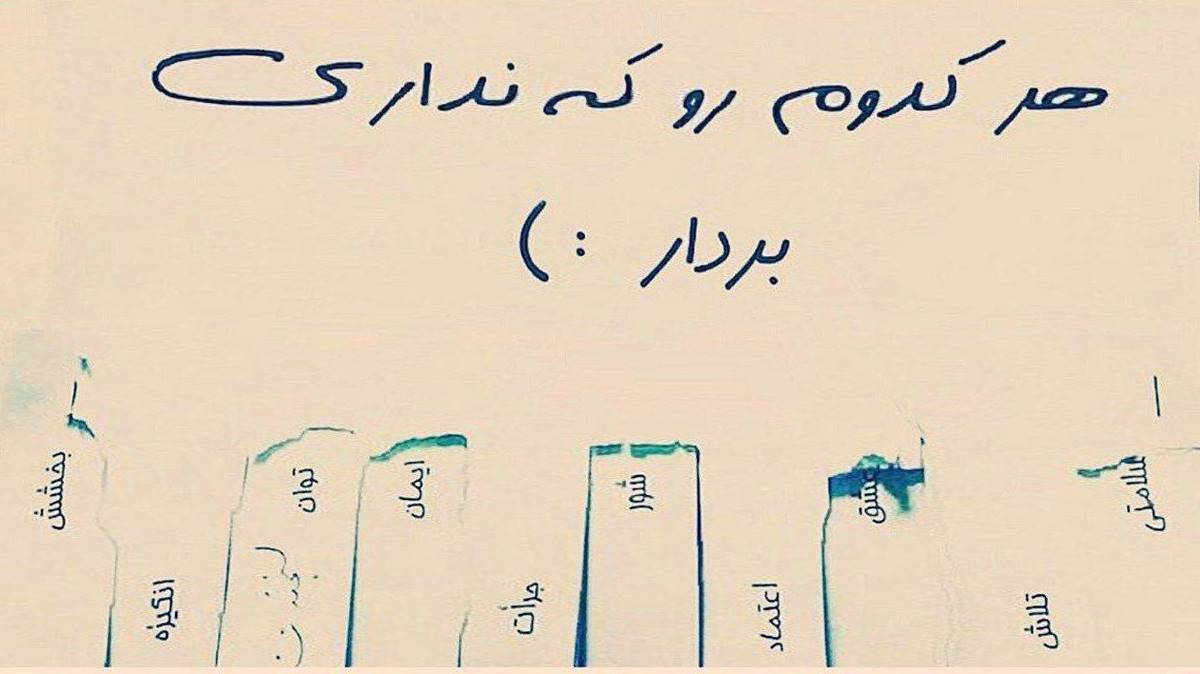 هر کدوم رو که نداری
بردار :)
سلامتی
تلاش
عشق
اعتماد
شور
جرأت
ایمان
توان
انگیزه
بخشش